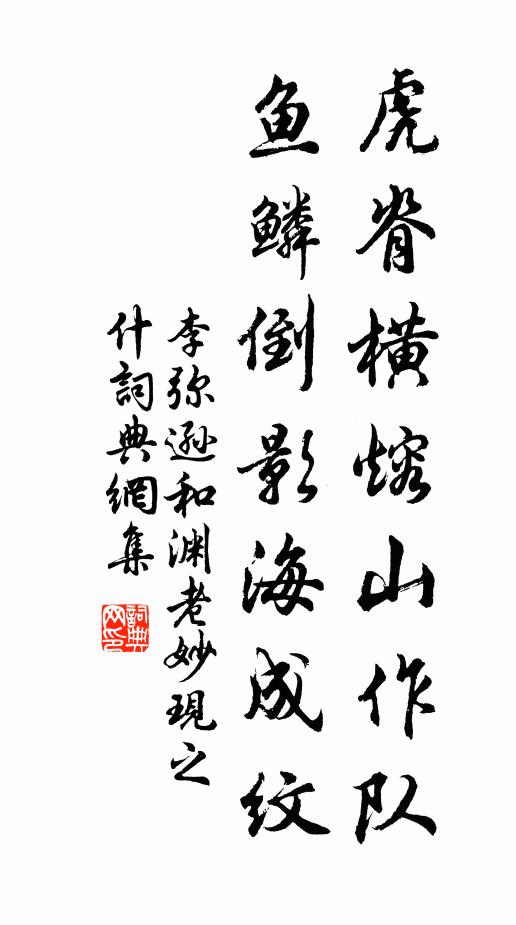 虎脊横熔山作队
鱼鳞倒影海成纹
李弥逊和渊老妙現之
什詞典網集
詞典网印